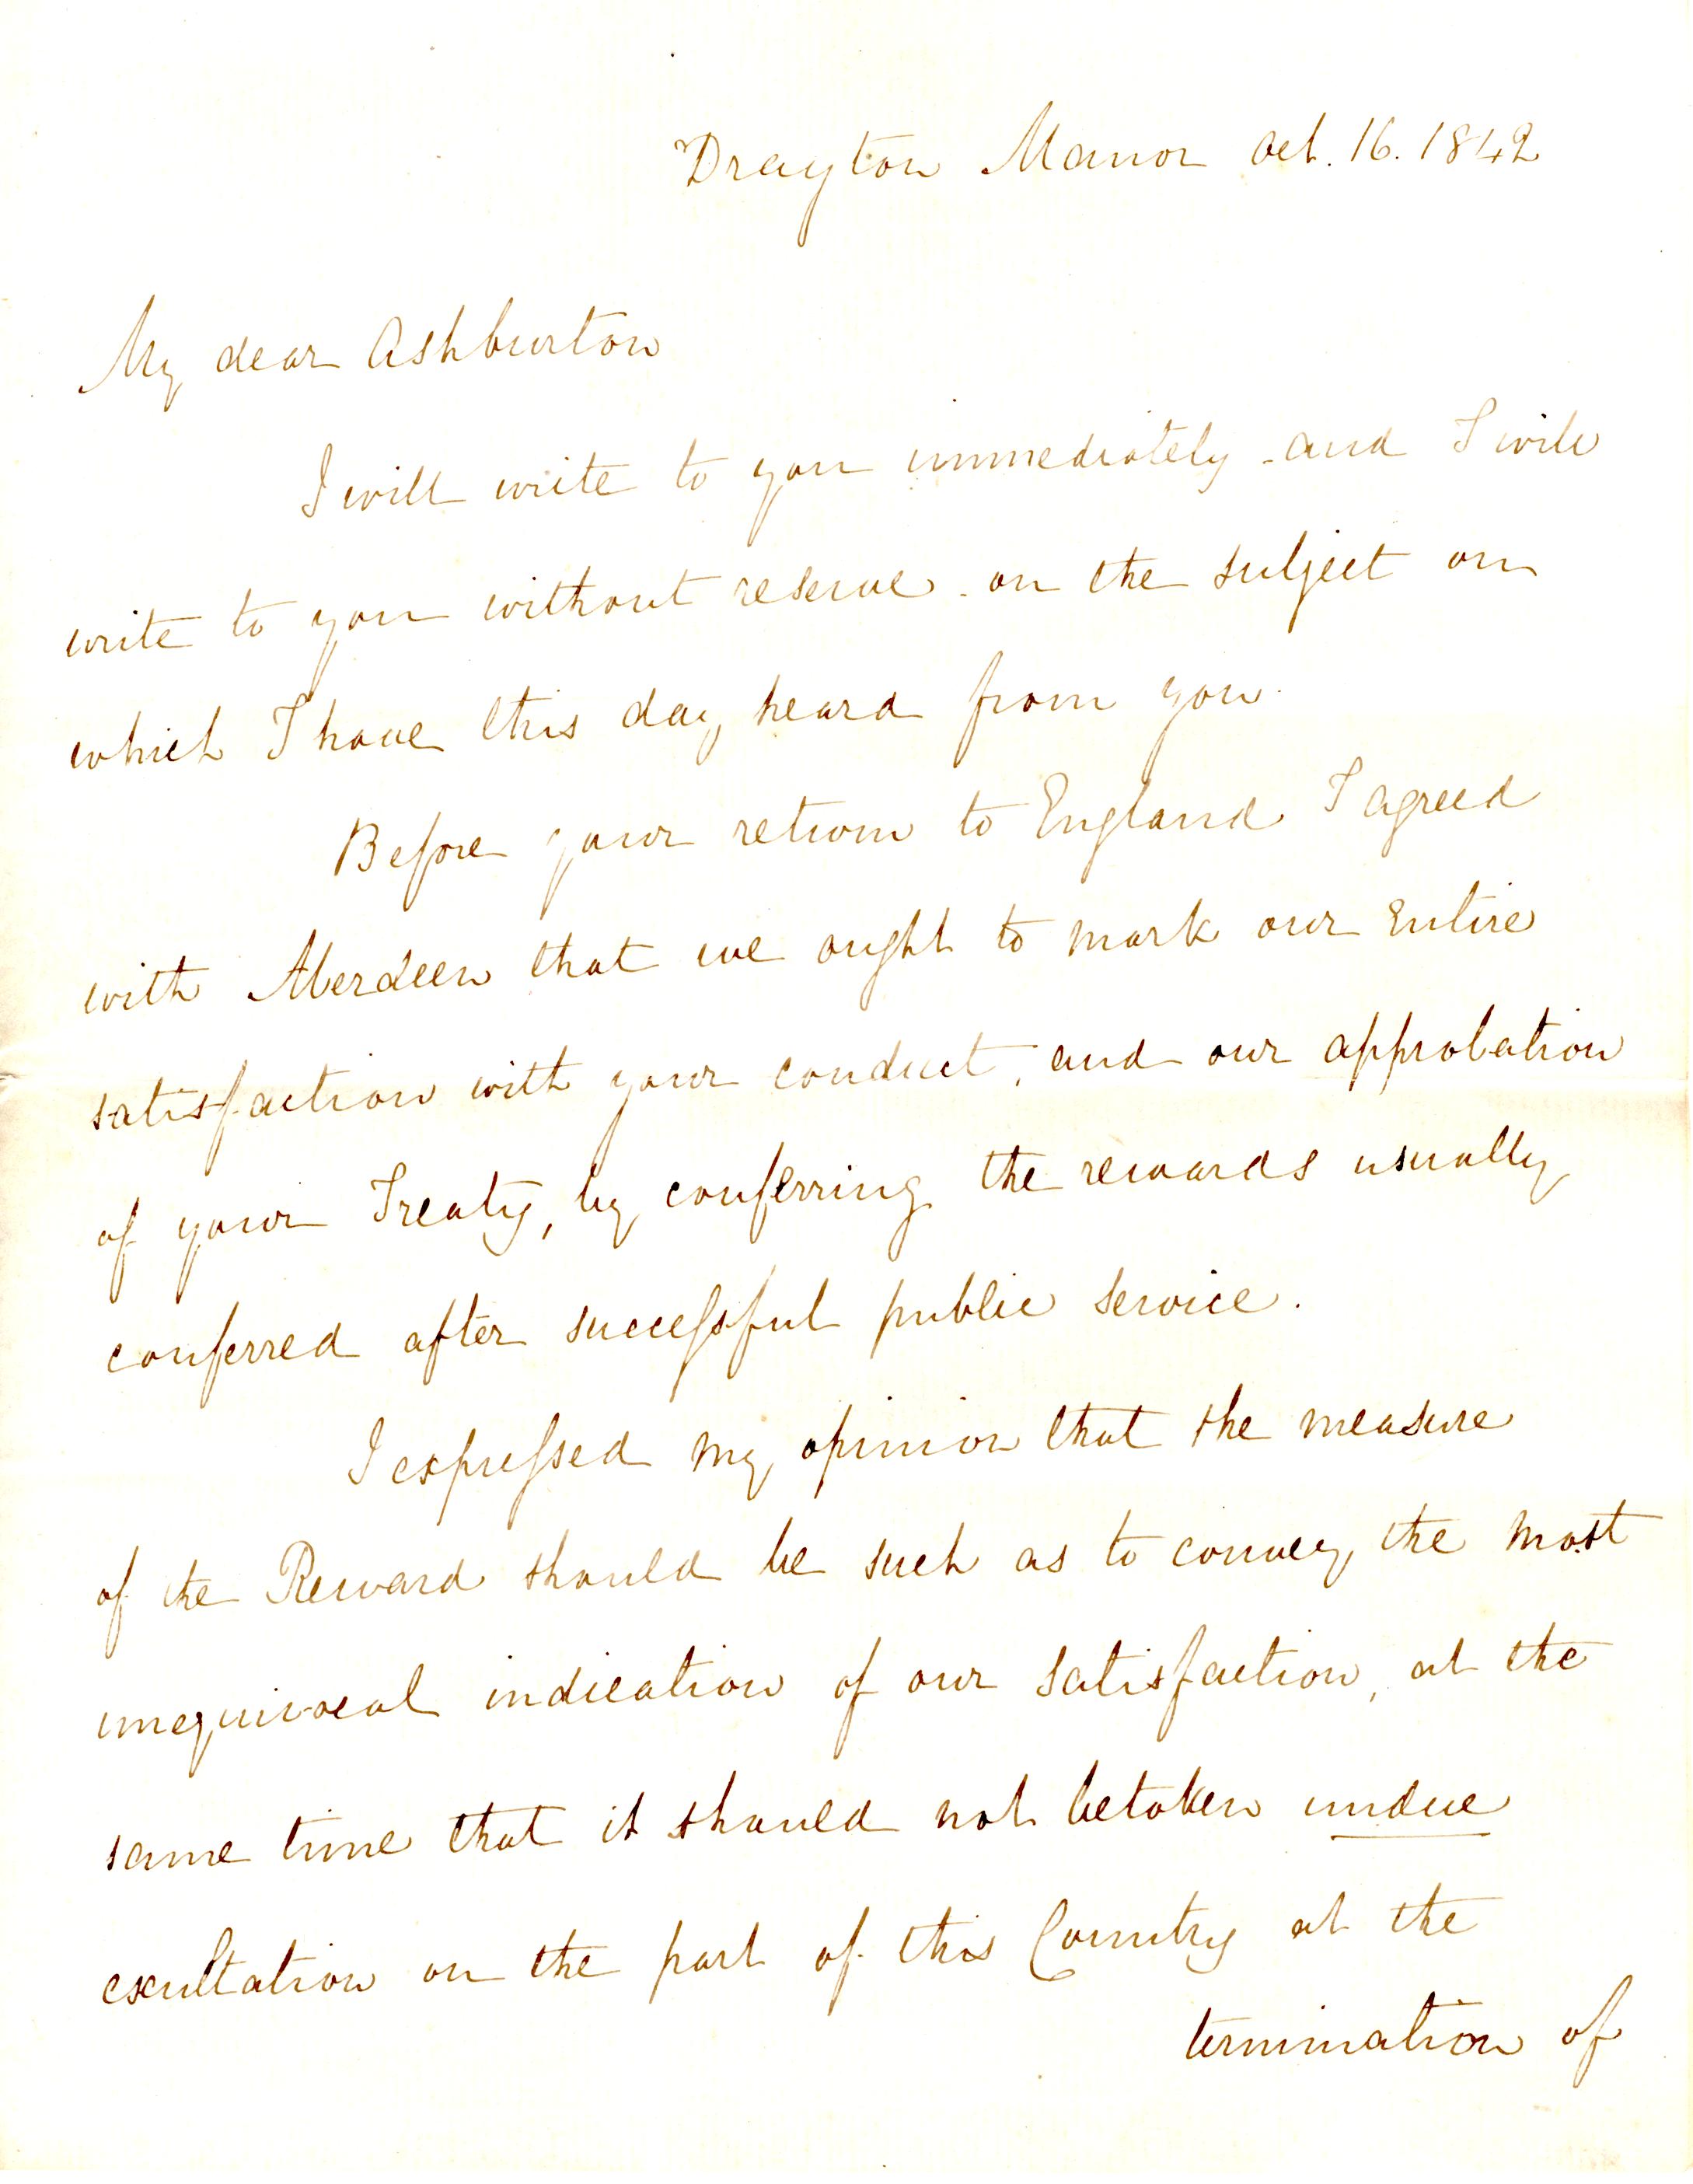 Drayton Manor Oct. 16. 1842
My dear Ashburton
I will write to you immediately - and I will
write to you without reserve - on the subject on
which I have this day heard from you.
Before your return to England I agreed
with Aberdeen that we ought to mark our entire
satisfaction with your conduct, and our approbation
of your Treaty, by conferring the rewards usually
conferred after successful public service.
I expressed my opinion that the measure
of the Reward should be such as to convey the most
unequivocal indication of our satisfaction, at the
same time that it should not betoken undue
exultation on the part of this Country at the
termination of